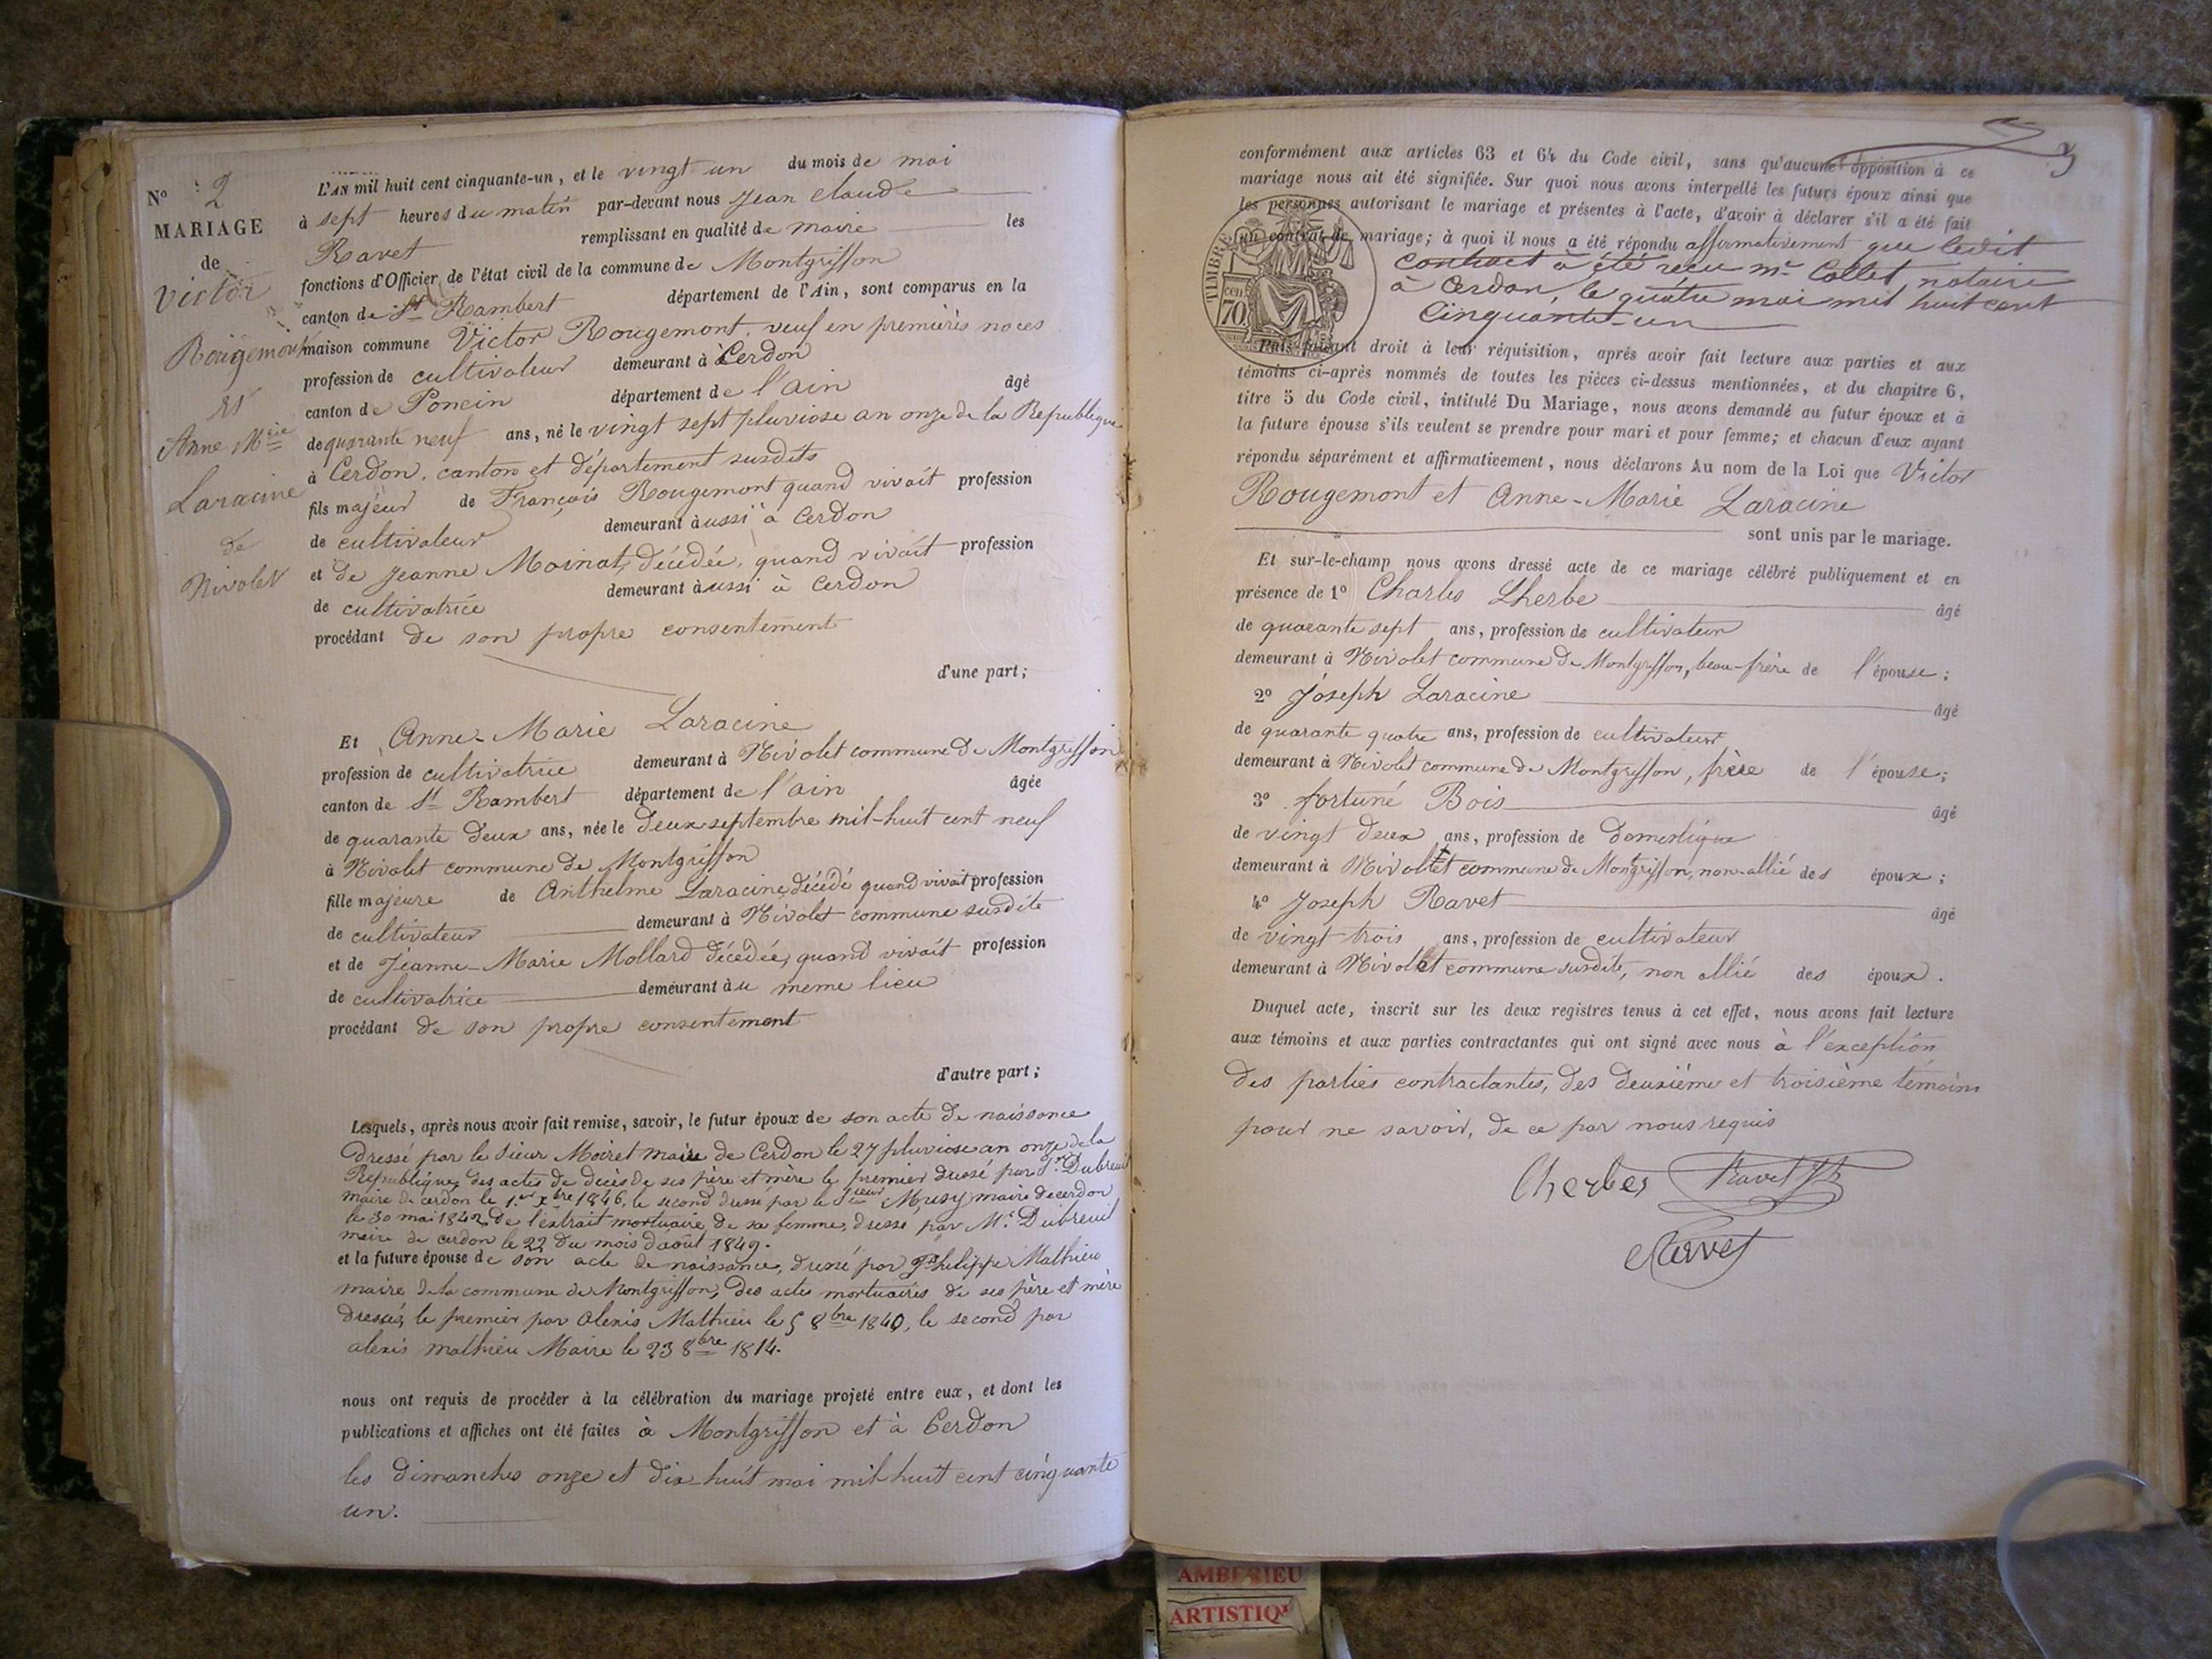 N° 2
MARIAGE
de
Victor
Rougemont
et
Anne Mrie
Laracine
de
Nivolet
L'AN mil huit cent cinquante-un, et le vingt un du mois de mai
à sept heures du matin par-devant nous Jean Claude
Ravet remplissant en qualité de maire les
fonctions d'Officier de l'état civil de la commune de Montgriffon
canton de St Rambert département de l'Ain, sont comparus en la
maison commune Victor Rougemont, veuf en premières noces
profession de cultivateur demeurant à Cerdon
canton de Poncin département de l'ain âgé
de quarante neuf ans, né le vingt sept pluviose an onze de la République
à Cerdon, canton et département susdits
fils majeur de François Rougemont quand vivait profession
de cultivateur demeurant aussi à Cerdon
et de Jeanne Moinat, décédée, quand vivait profession
de cultivatrice demeurant aussi à Cerdon
procédant de son propre consentement
d'une part;
Et Anne-Marie Laracine
profession de cultivatrice demeurant à Nivolet commune de Montgriffon
canton de St Rambert département de l'ain âgée
de quarante deux ans, née le deux septembre mil-huit cent neuf
à Nivolet commune de Montgriffon
fille majeure de Anthelme Laracine, décédé quand vivait profession
de cultivateur demeurant à Nivolet commune susdite
et de Jeanne-Marie Mollard décédée, quand vivait profession
de cultivatrice demeurant au meme lieu
procédant de son propre consentement
d'autre part;
Lesquels, après nous avoir fait remise, savoir, le futur époux de son acte de naissance
dressé par le sieur Moiret maire de Cerdon le 27 pluviose an onze de la
République, des actes de décès de ses père et mère le premier dressé par Mr Dubreuil
maire de cerdon le 1er xbre 1846, le second dressé par le Sieur Musy maire de cerdon
le 30 mai 1842, de l'extrait mortuaire de sa femme, dressé par Mr Dubreuil
maire de cerdon le 22 du mois d'août 1849.
et la future épouse de son acte de naissance, dressé par Philippe Mathieu
maire de la commune de Montgriffon, des actes mortuaires de ses père et mère
dressés, le premier par alexis Mathieu le 5 8bre 1840, le second par
alexis mathieu Maire le 23 8bre 1814.
nous ont requis de procéder à la célébration du mariage projeté entre eux, et dont les
publications et affiches ont été faites à Montgriffon et à Cerdon
les dimanches onze et dix-huit mai mil huit cent cinquante
un.
conformément aux articles 63 et 64 du Code civil, sans qu'aucune opposition à ce
mariage nous ait été signifiée. Sur quoi nous avons interpellé les futurs époux ainsi que
les personnes autorisant le mariage et présentes à l'acte, d'avoir à déclarer s'il a été fait
un contrat de mariage; à quoi il nous a été répondu affirmativement que ledit
contract a été reçu mr Collet, notaire
à Cerdon, le quatre mai mil huit cent
Cinquante-un
TIMBRE
cen
70
Puis faisant droit à leur réquisition, après avoir fait lecture aux parties et aux
témoins ci-après nommés de toutes les pièces ci-dessus mentionnées, et du chapitre 6,
titre 5 du Code civil, intitulé Du Mariage, nous avons demandé au futur époux et à
la future épouse s'ils veulent se prendre pour mari et pour femme; et chacun d'eux ayant
répondu séparément et affirmativement, nous déclarons Au nom de la Loi que Victor
Rougemont et Anne-Marie Laracine
sont unis par le mariage.
Et sur-le-champ nous avons dressé acte de ce mariage célébré publiquement et en
présence de 1° Charles Lherbe âgé
de quarante sept ans, profession de cultivateur
demeurant à Nivolet commune de Montgriffon, beau-frère de l'épouse;
2° Joseph Laracine âgé
de quarante quatre ans, profession de cultivateur
demeurant à Nivolet commune de Montgriffon, frère de l'épouse;
3° fortuné Bois âgé
de vingt deux ans, profession de domestique
demeurant à Nivollet commune de Montgriffon, non-allié des époux;
4° Joseph Ravet âgé
de vingt trois ans, profession de cultivateur
demeurant à Nivollet commune susdite, non allié des époux.
Duquel acte, inscrit sur les deux registres tenus à cet effet, nous avons fait lecture
aux témoins et aux parties contractantes qui ont signé avec nous à l'exception
des parties contractantes, des deuxième et troisième témoins
pour ne savoir, de ce par nous requis
Cherbes Ravet
Ravet
AMBERIEU
ARTISTIQU